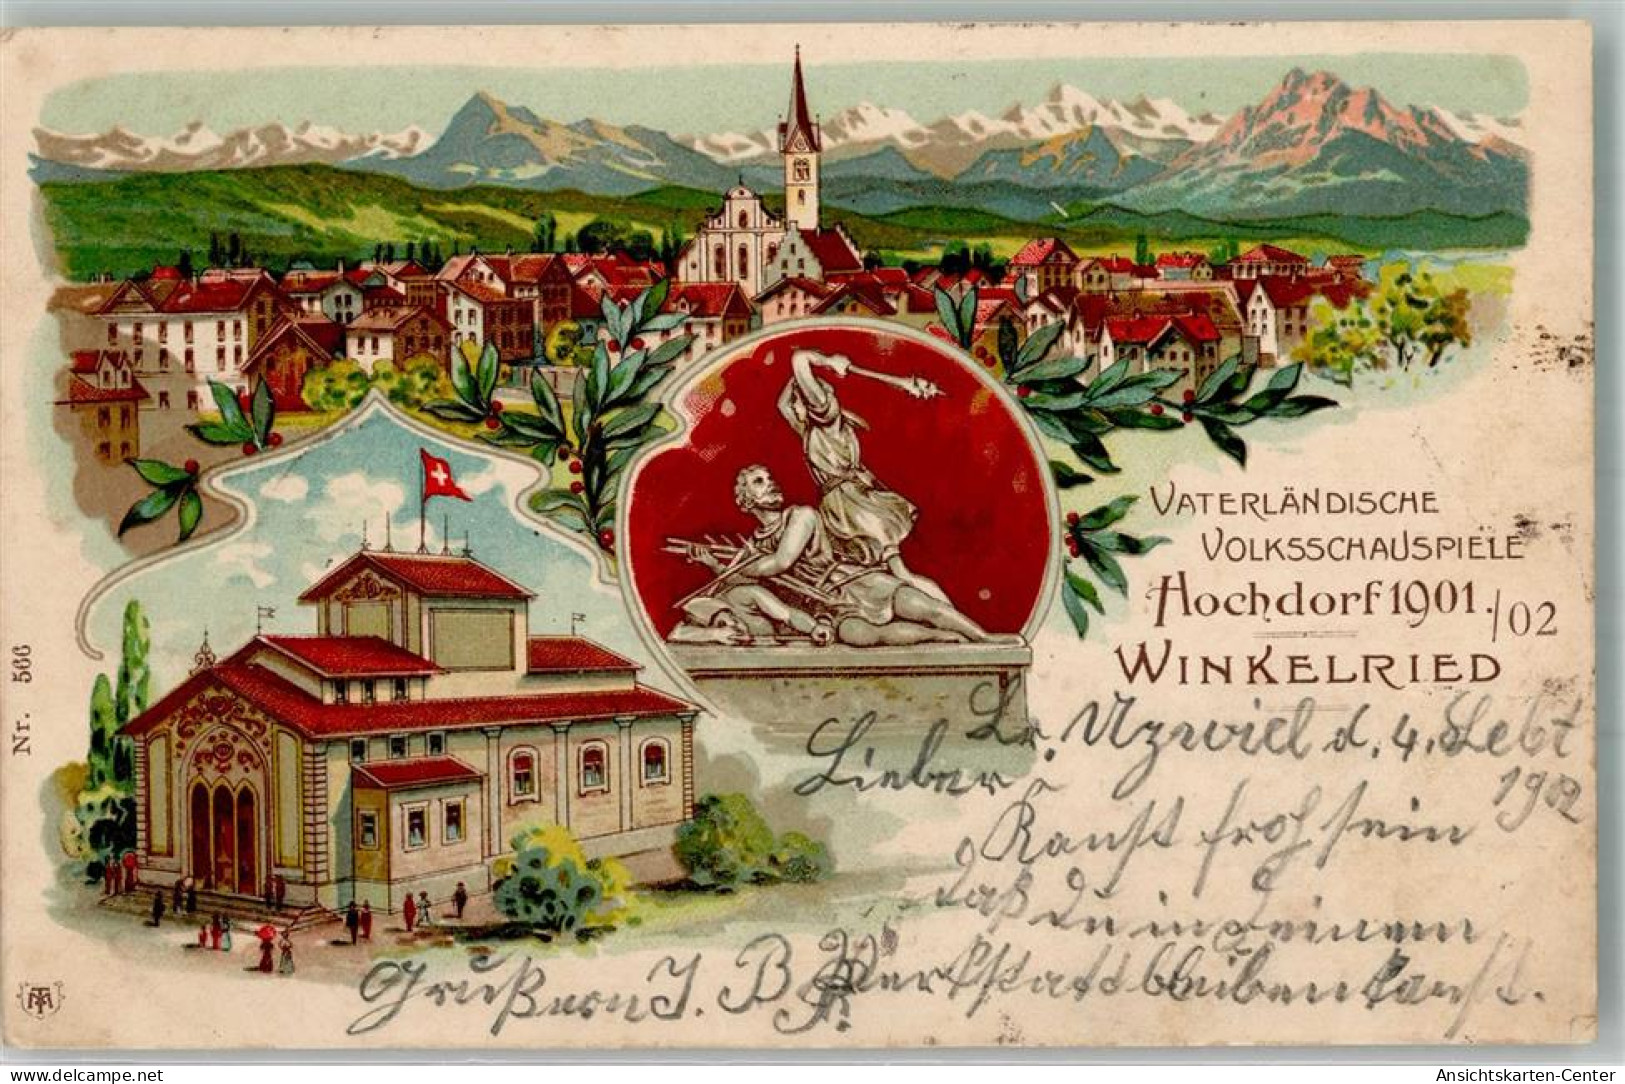 VATERLÄNDISCHE
VOLKSSCHAUSPIELE
Hochdorf 1901./02
WINKELRIED
Nr. 566
Uzwiel d. 4. Sebt
1902
Lieber
Kanst froh sein
daß du in deinem
Werkstatt bleiben kanst.
Gruß von J. B.
delcampe.net
Ansichtskarten-Center